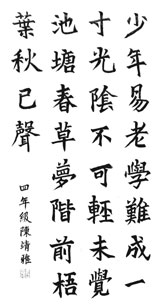 少年易老學難成一
寸光陰不可輕未覺
池塘春草夢階前梧
葉秋已聲
四年級陳靖雅